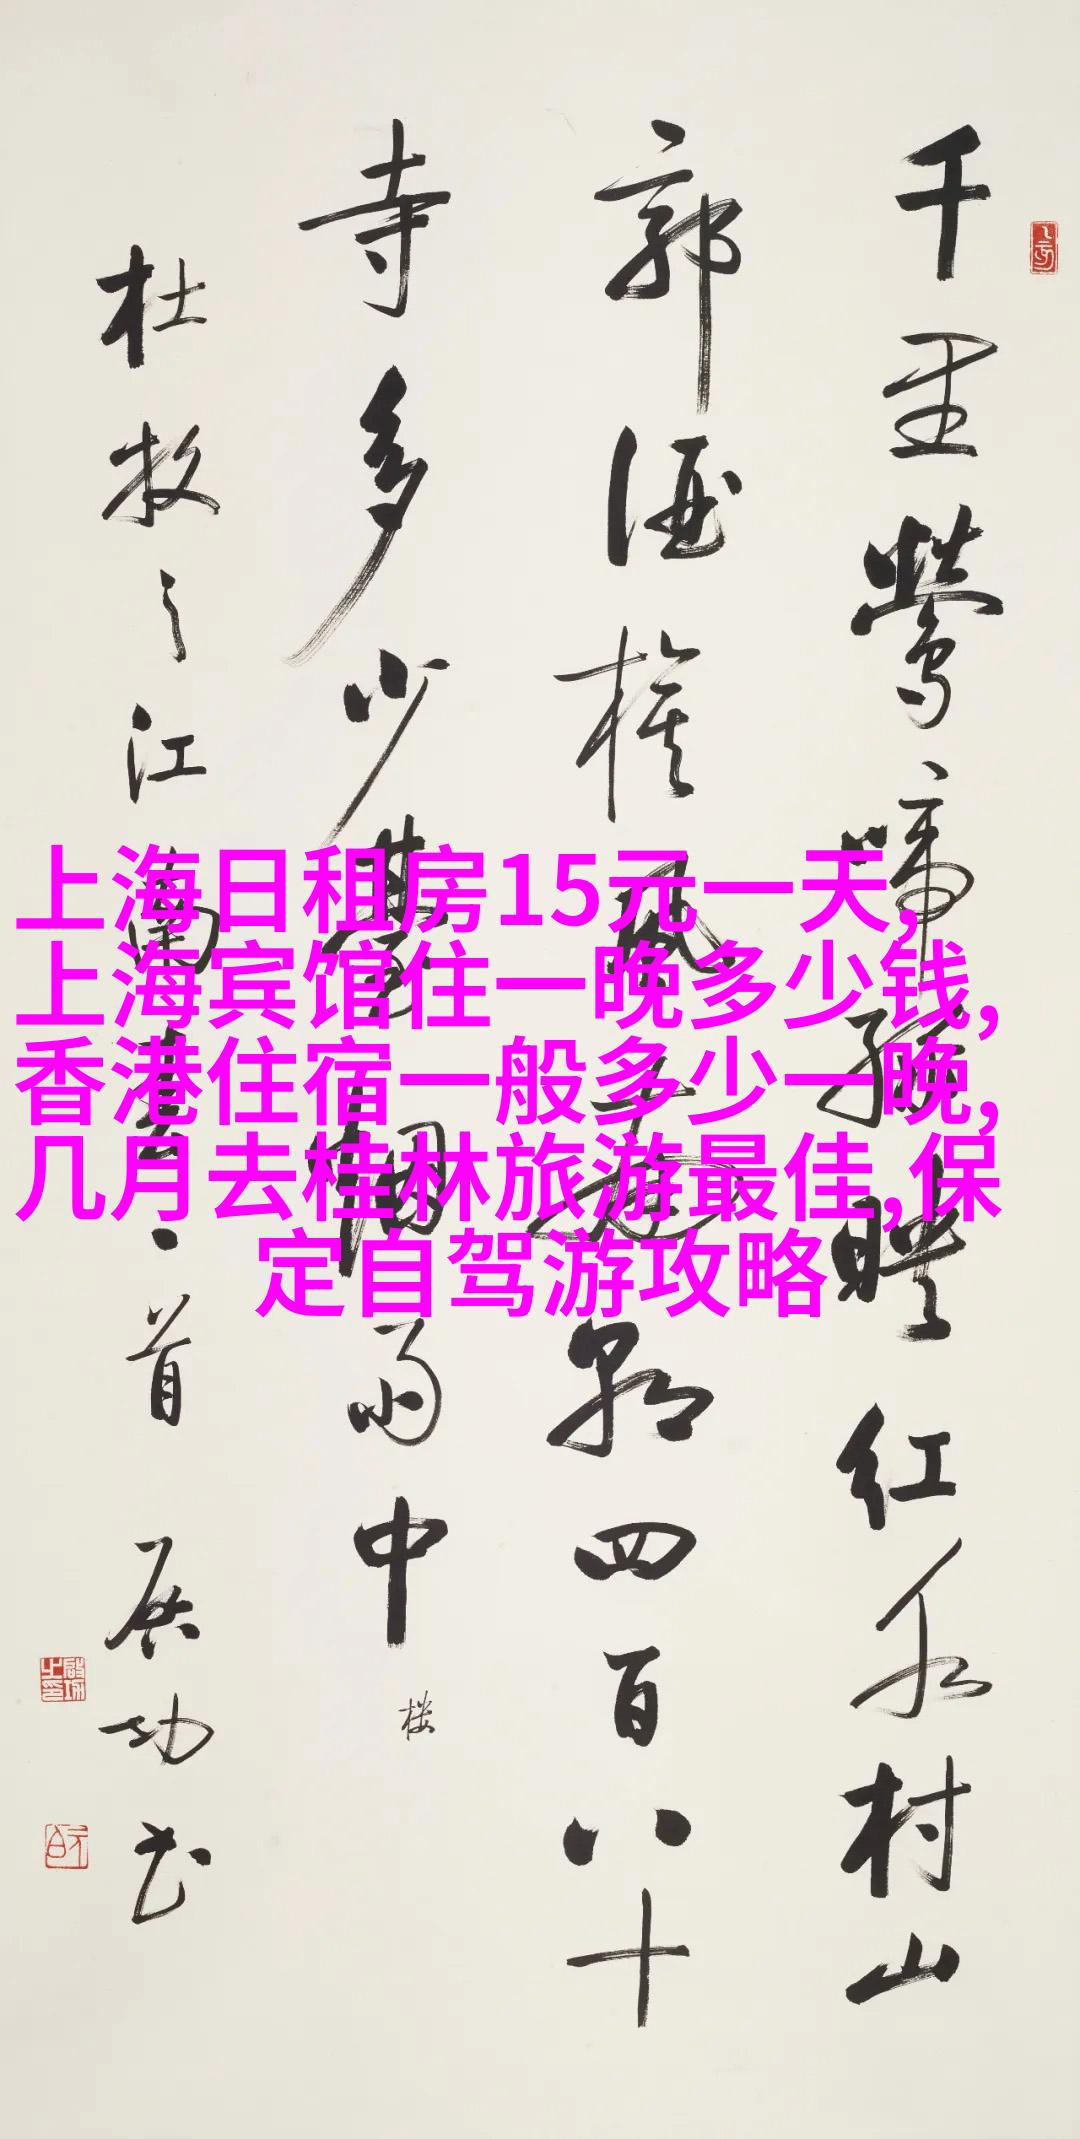 千里莺啼绿映红水村山
郭酒旗风 四百八十
寺多少楼台烟雨中
楼
杜牧之江南春一首 启功书
上海日租房15元一天,
上海宾馆住一晚多少钱,
香港住宿一般多少一晚,
几月去桂林旅游最佳,保
定自驾游攻略